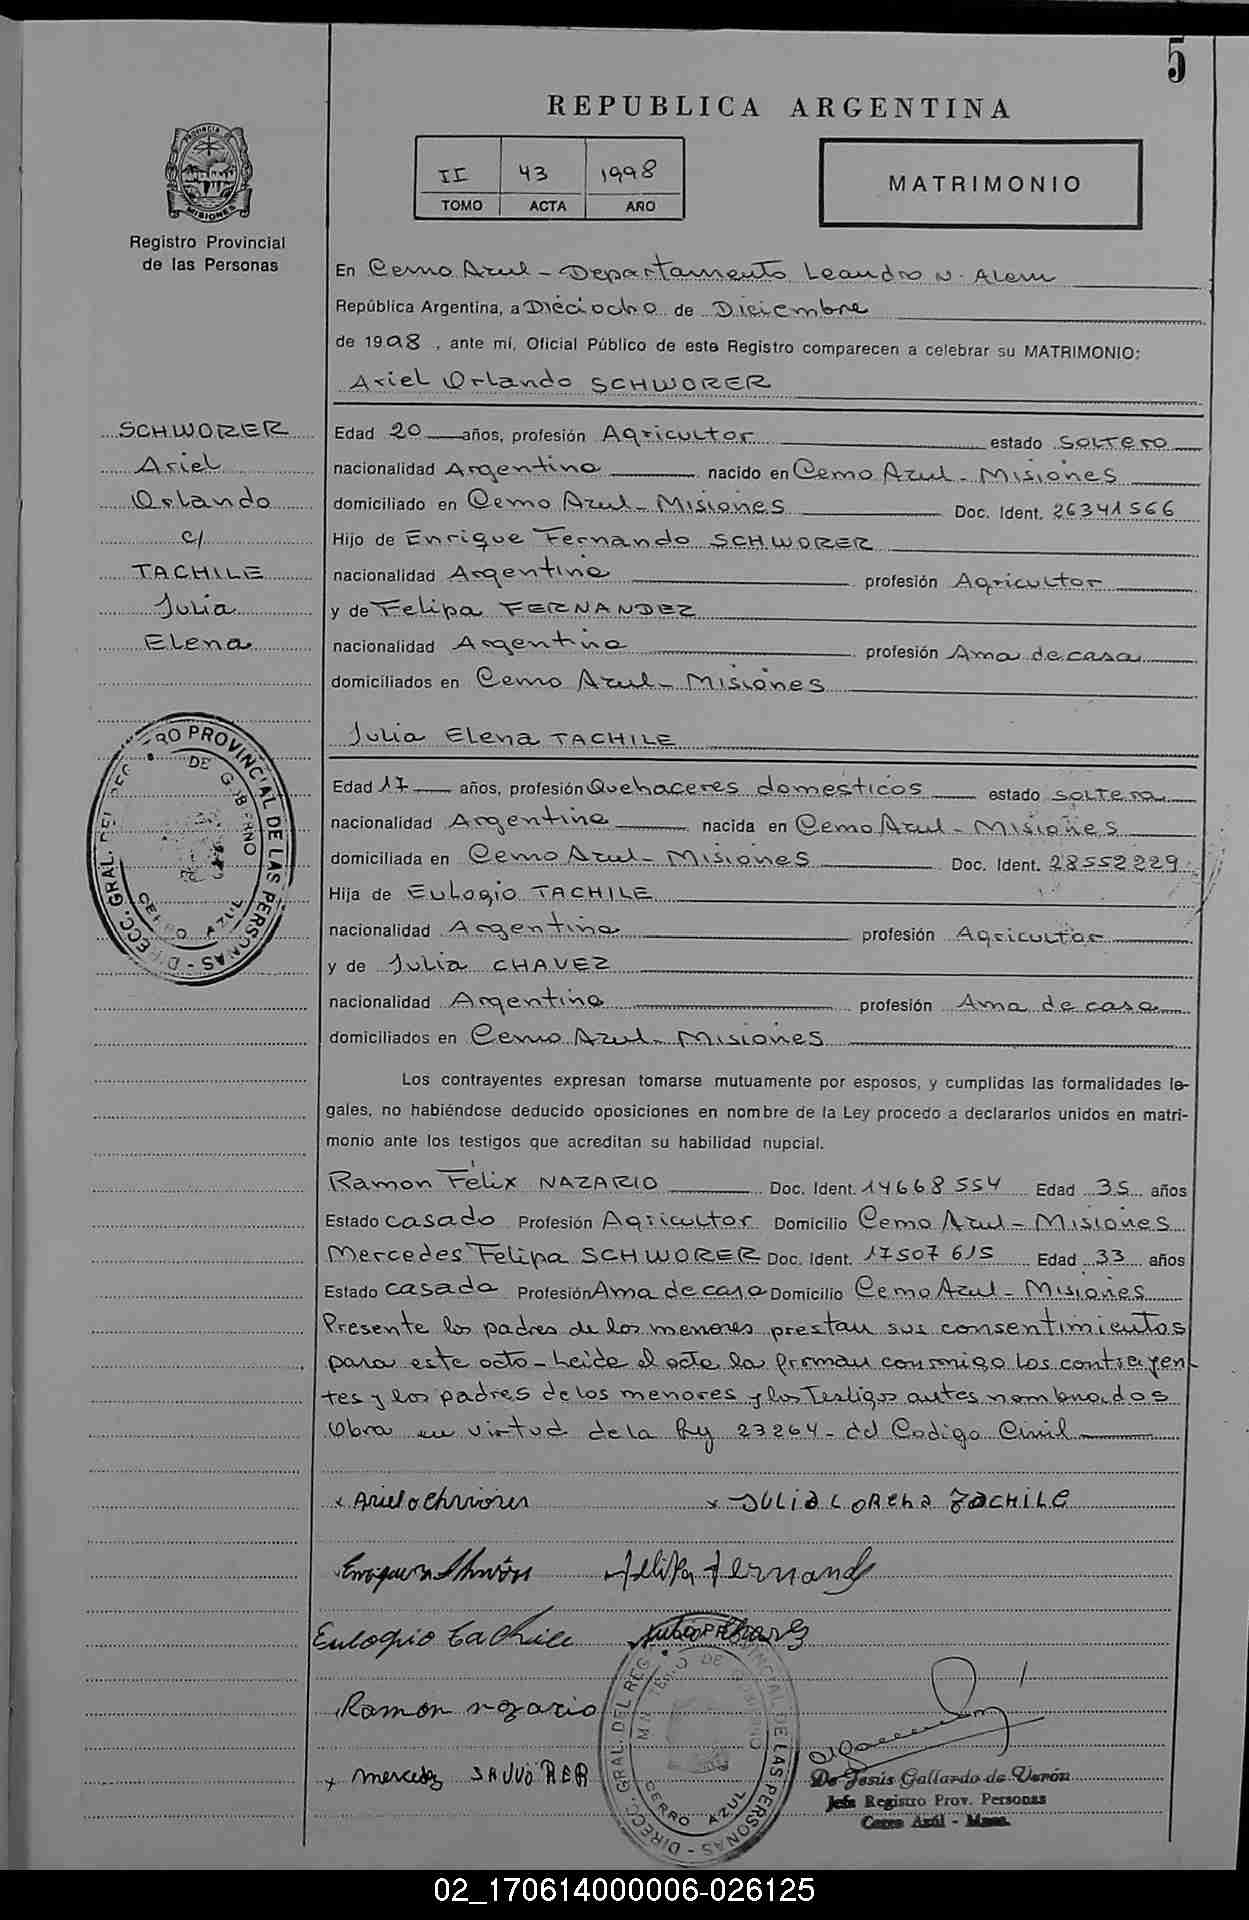 5
REPUBLICA ARGENTINA
II 43 1998
TOMO ACTA AÑO
MATRIMONIO
PROVINCIA D
MISIONES
Registro Provincial
de las Personas
En Cerro Azul - Departamento Leandro N. Alem
República Argentina, a Dieciocho de Diciembre
de 1998, ante mí, Oficial Público de este Registro comparecen a celebrar su MATRIMONIO:
Ariel Orlando SCHWORER
SCHWORER
Ariel
Orlando
c/
TACHILE
Julia
Elena
Edad 20 años, profesión Agricultor estado soltero
nacionalidad Argentina nacido en Cerro Azul - Misiones
domiciliado en Cerro Azul - Misiones Doc. Ident. 26341566
Hijo de Enrique Fernando SCHWORER
nacionalidad Argentina profesión Agricultor
y de Felipa FERNANDEZ
nacionalidad Argentina profesión Ama de casa
domiciliados en Cerro Azul - Misiones
Julia Elena TACHILE
Edad 17 años, profesión Quehaceres domésticos estado soltera
nacionalidad Argentina nacida en Cerro Azul - Misiones
domiciliada en Cerro Azul - Misiones Doc. Ident. 28552229
Hija de Eulogio TACHILE
nacionalidad Argentina profesión Agricultor
y de Julia CHAVEZ
nacionalidad Argentina profesión Ama de casa
domiciliados en Cerro Azul - Misiones
Los contrayentes expresan tomarse mutuamente por esposos, y cumplidas las formalidades le-
gales, no habiéndose deducido oposiciones en nombre de la Ley procedo a declararlos unidos en matri-
monio ante los testigos que acreditan su habilidad nupcial.
Ramon Félix NAZARIO Doc. Ident. 14668554 Edad 35 años
Estado casado Profesión Agricultor Domicilio Cerro Azul - Misiones
Mercedes Felipa SCHWORER Doc. Ident. 17507615 Edad 33 años
Estado casada Profesión Ama de casa Domicilio Cerro Azul - Misiones
Presente los padres de los menores prestan sus consentimientos
para este acto - Leída el acta la firman conmigo los contrayen-
tes y los padres de los menores y los Testigos antes nombrados
Obra en virtud de la Ley 23264 - del Codigo Civil
x Ariel o Chworer x JULIA LORENA TACHILE
Felipa Fernand
Eulogio Tachile Julia Chavez
Ramon nazario
x mercedes
DIRECC. GRAL. DEL REG. PROVINCIAL DE LAS PERSONAS
DE GOBIERNO
CERRO AZUL
De Jesús Gallardo de Verón
Jefa Registro Prov. Personas
Cerro Azúl - Mnes.
02_170614000006-026125